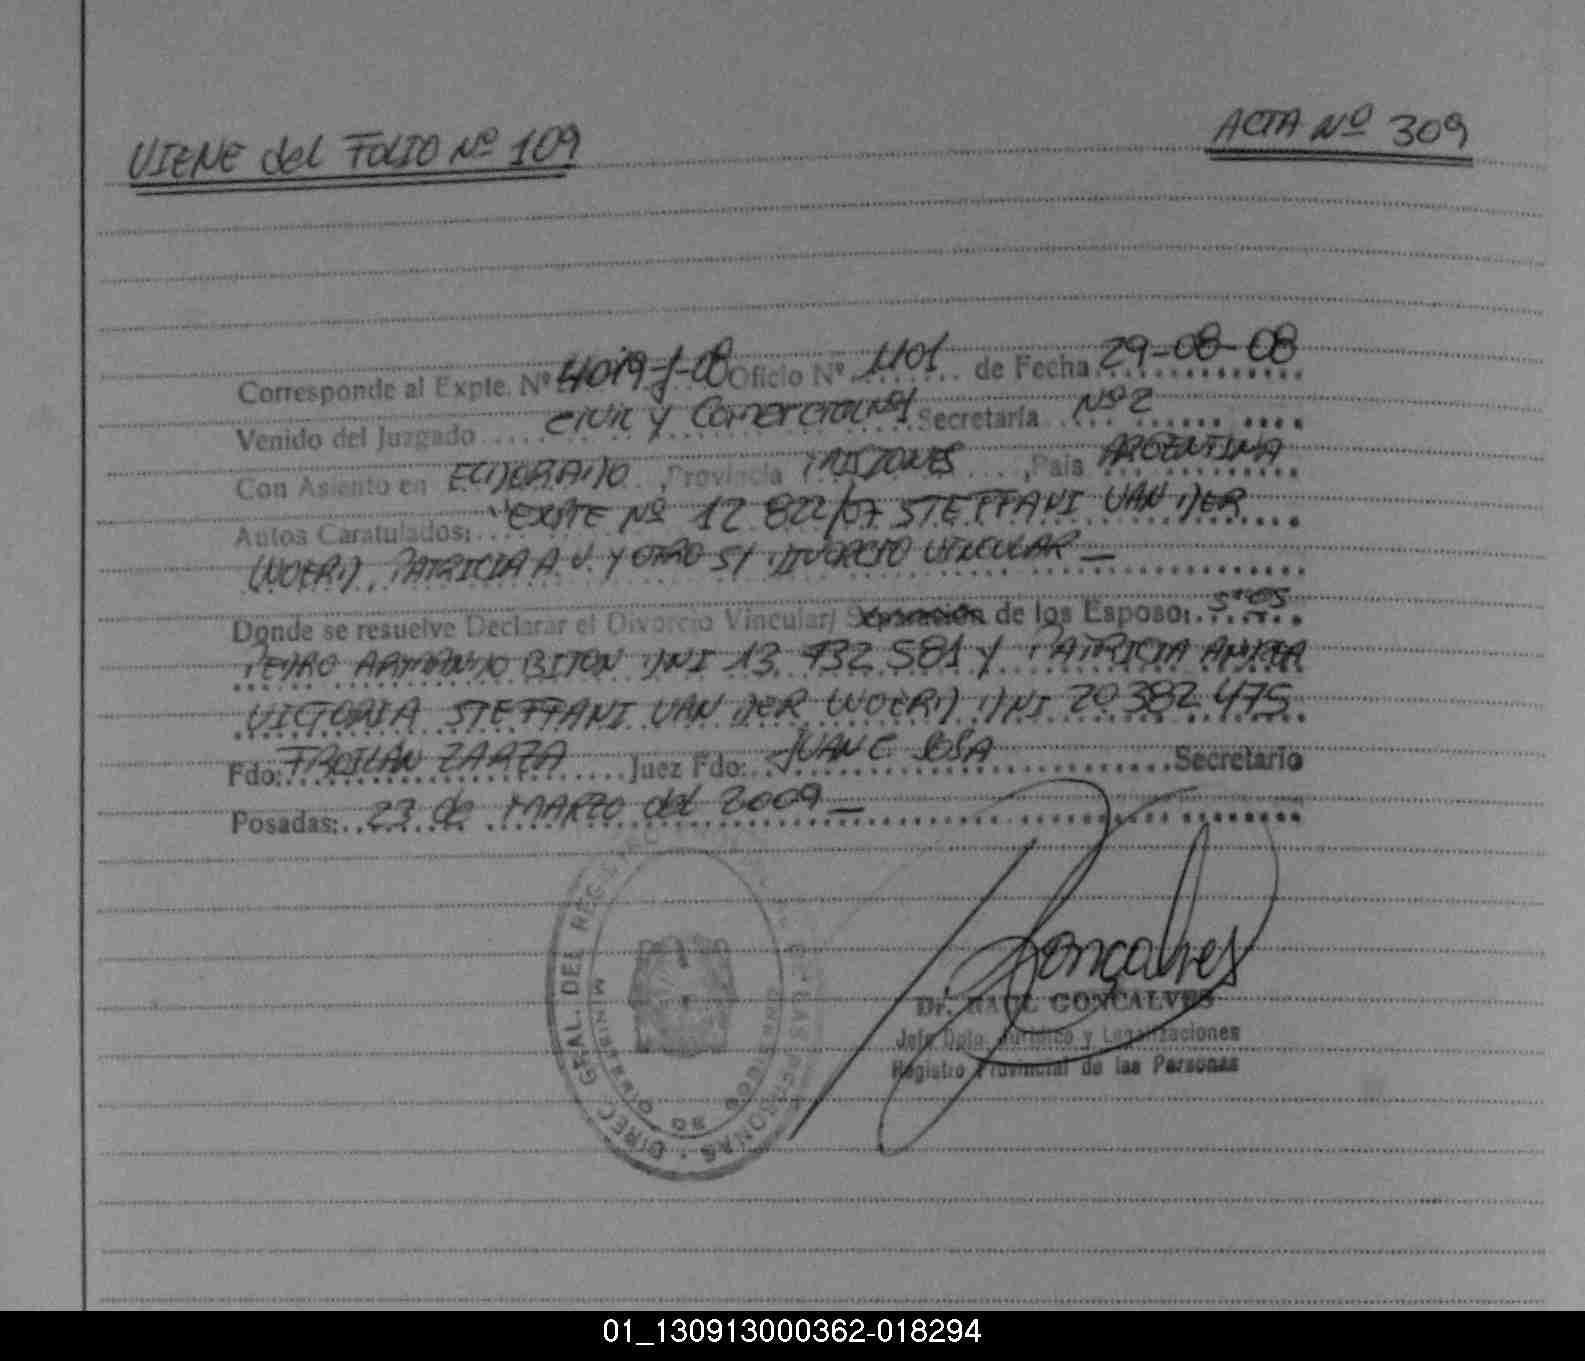 VIENE del FOLIO Nº 109
ACTA Nº 309
Corresponde al Expte. Nº 4019-J-08 Oficio Nº 1101 de Fecha 29-08-08
Venido del Juzgado Civil y Comercial Nº1 Secretaria Nº 2
Con Asiento en ELDORADO, Provincia MISIONES, País ARGENTINA
Autos Caratulados: "EXPTE Nº 12 822/07 STEFFANI VAN DER
WOERD, PATRICIA A. V. Y OTRO S/ DIVORCIO VINCULAR —
Donde se resuelve Declarar el Divorcio Vincular/ Separación de los Esposo: Sres
PEDRO BITON DNI 13 932 581 Y PATRICIA
VICTORIA STEFFANI VAN DER WOERD DNI 20 382 475
Fdo: FROILÁN ZARZA Juez Fdo: JUAN C. SOSA Secretario
Posadas: 23 de MARZO del 2009 —
DIREC. GRAL. DEL REG. DE LAS PERSONAS
MINISTERIO DE GOBIERNO
Gonçalves
Dr. RAUL GONCALVES
Jefe Dpto. Jurídico y Legalizaciones
Registro Provincial de las Personas
01_130913000362-018294